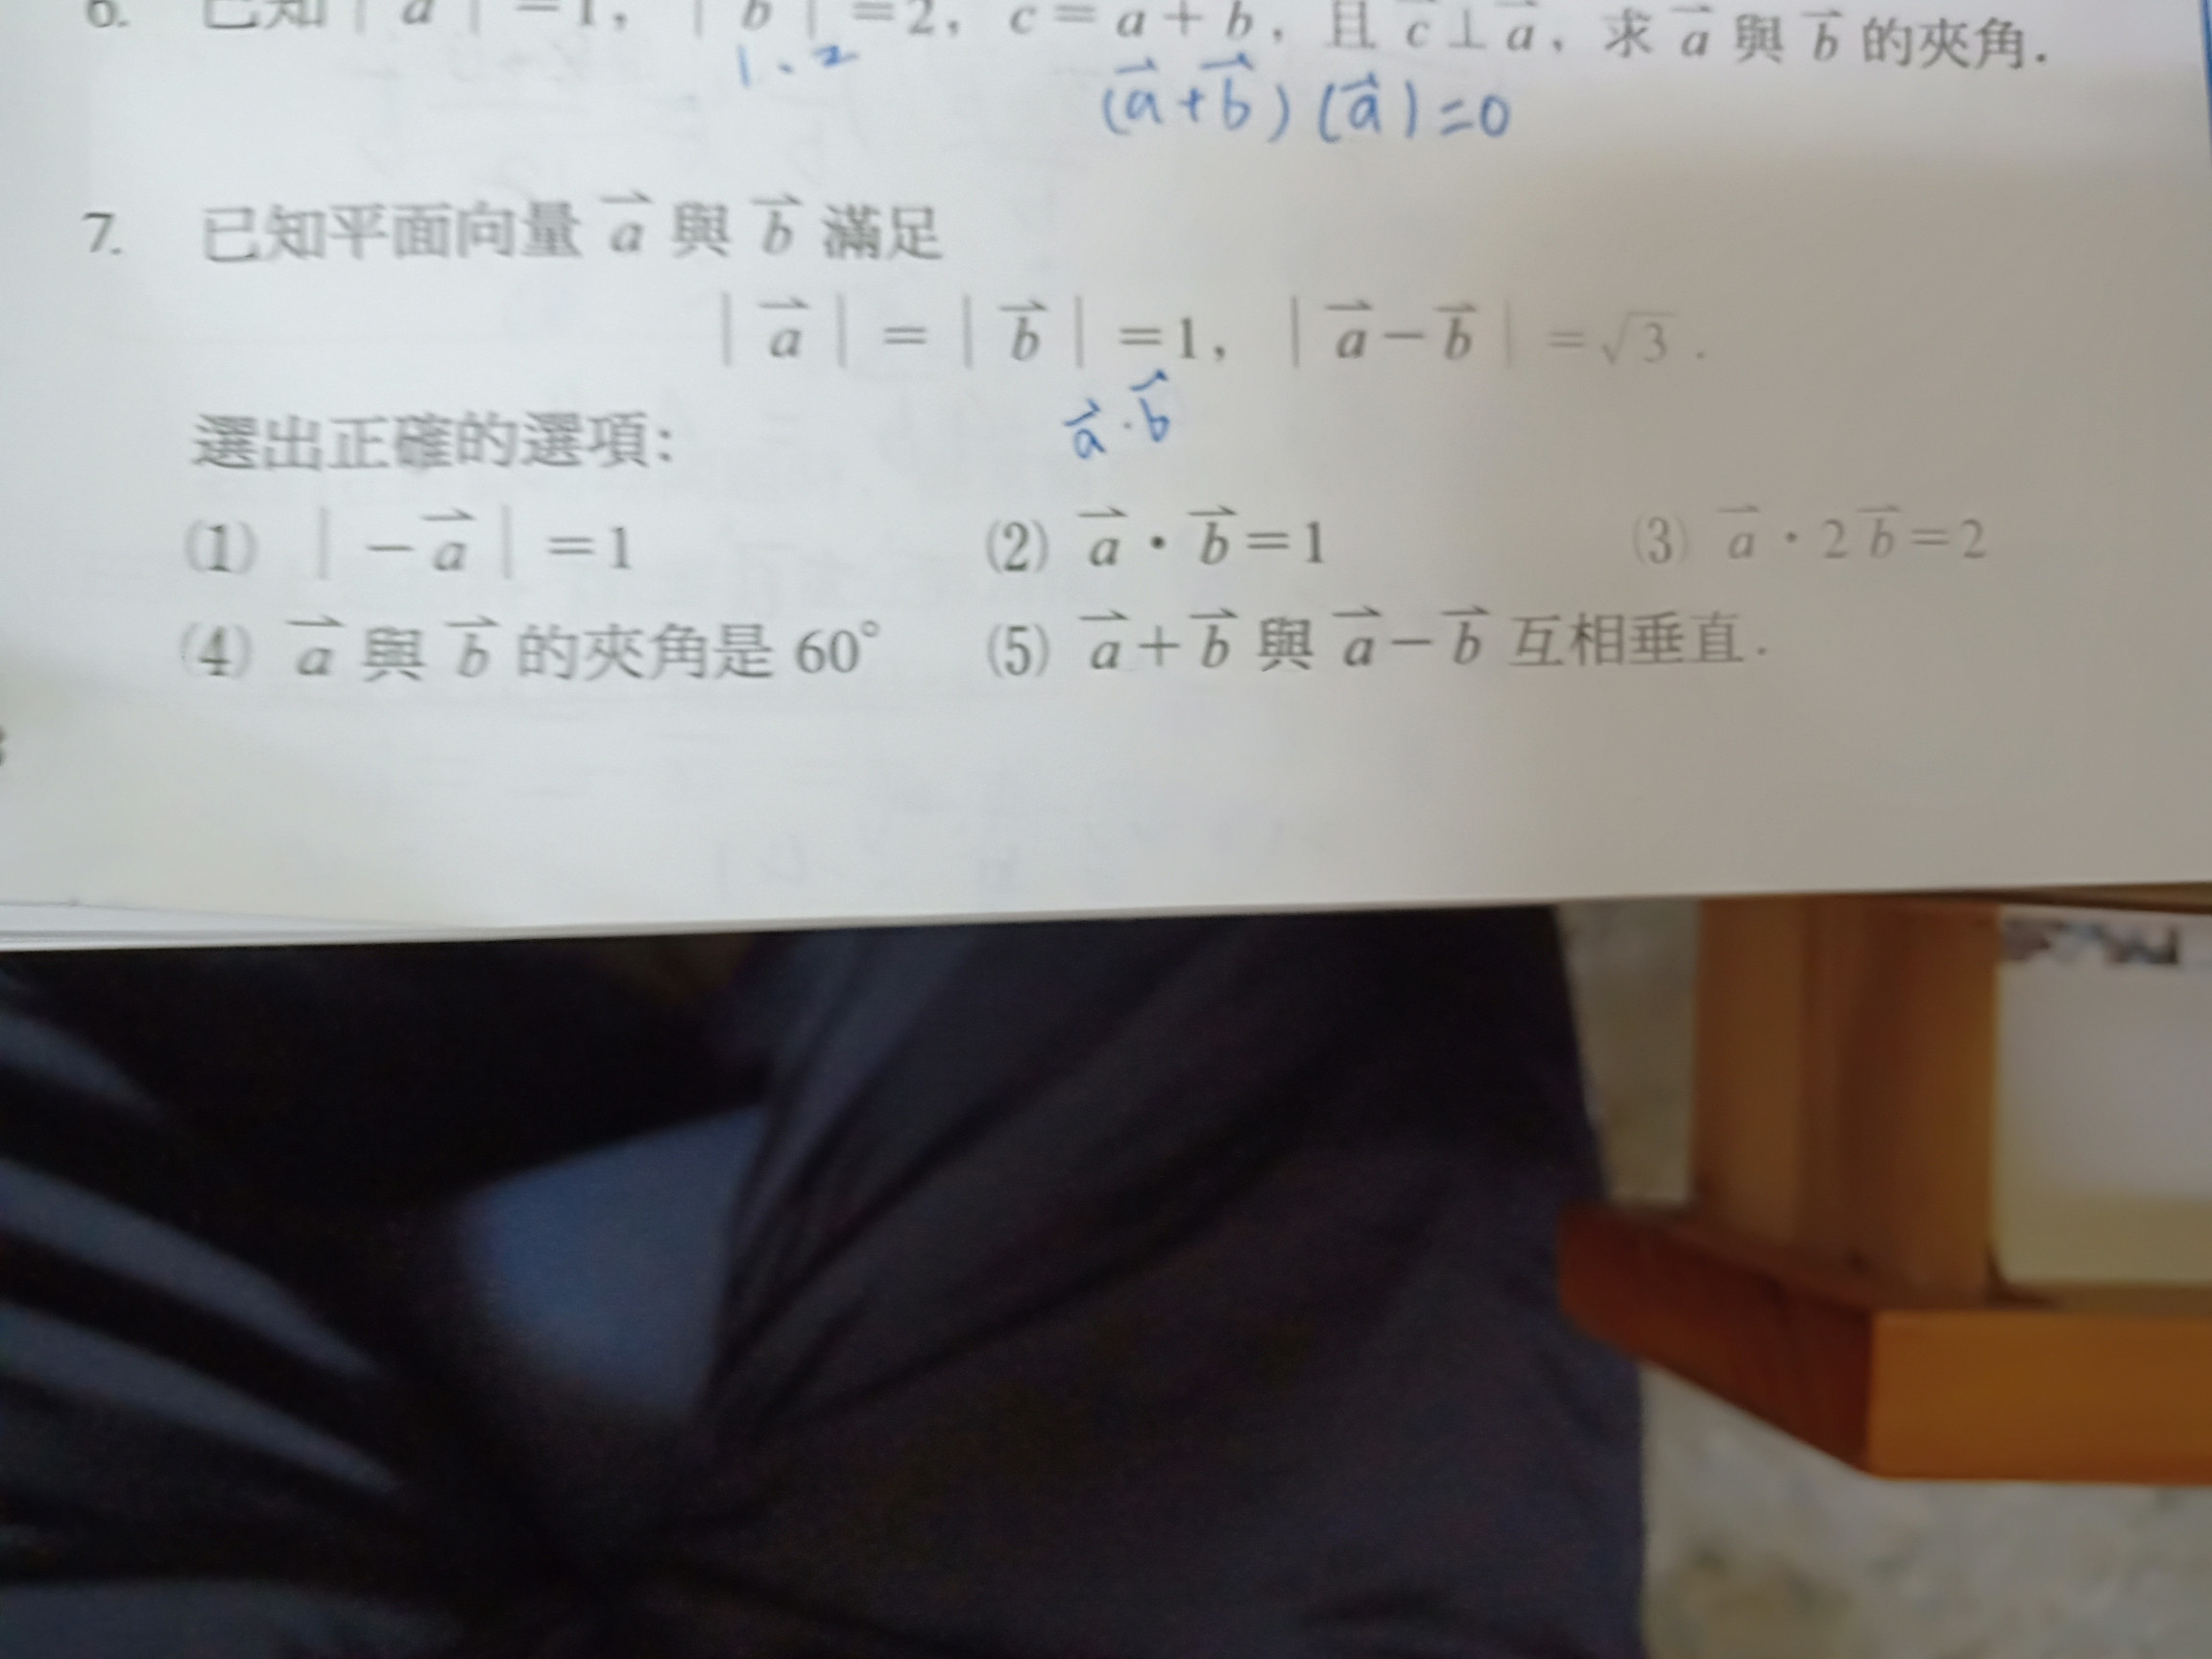 6. 已知 | a⃗ | =1, | b⃗ | =2, c⃗ = a⃗ + b⃗, 且 c⃗ ⊥ a⃗, 求 a⃗ 與 b⃗ 的夾角.
1 · 2
(a⃗+b⃗)(a⃗)=0
7. 已知平面向量 a⃗ 與 b⃗ 滿足
| a⃗ | = | b⃗ | =1, | a⃗ − b⃗ | =√3 .
a⃗ · b⃗
選出正確的選項:
(1) | −a⃗ | =1 (2) a⃗ · b⃗ =1 (3) a⃗ · 2 b⃗ =2
(4) a⃗ 與 b⃗ 的夾角是 60° (5) a⃗ + b⃗ 與 a⃗ − b⃗ 互相垂直.